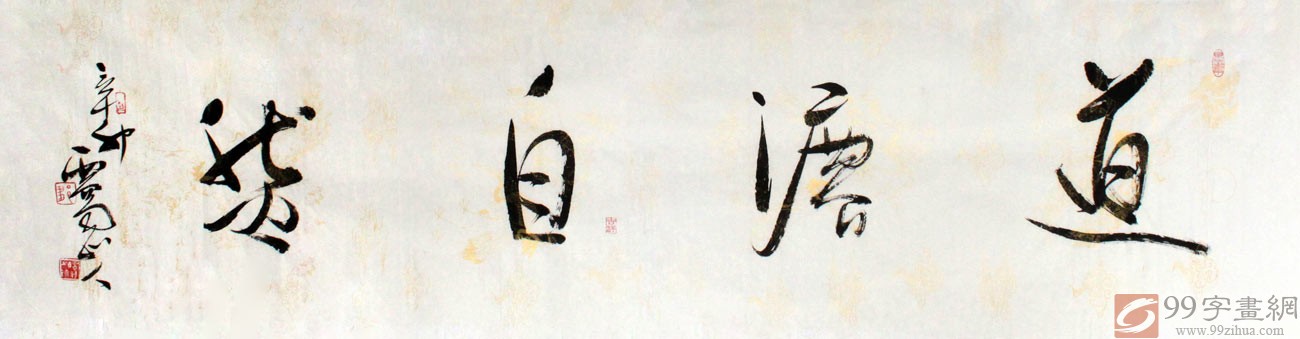 道灋自然
辛卯
山人
99字畫網
www.99zihua.com